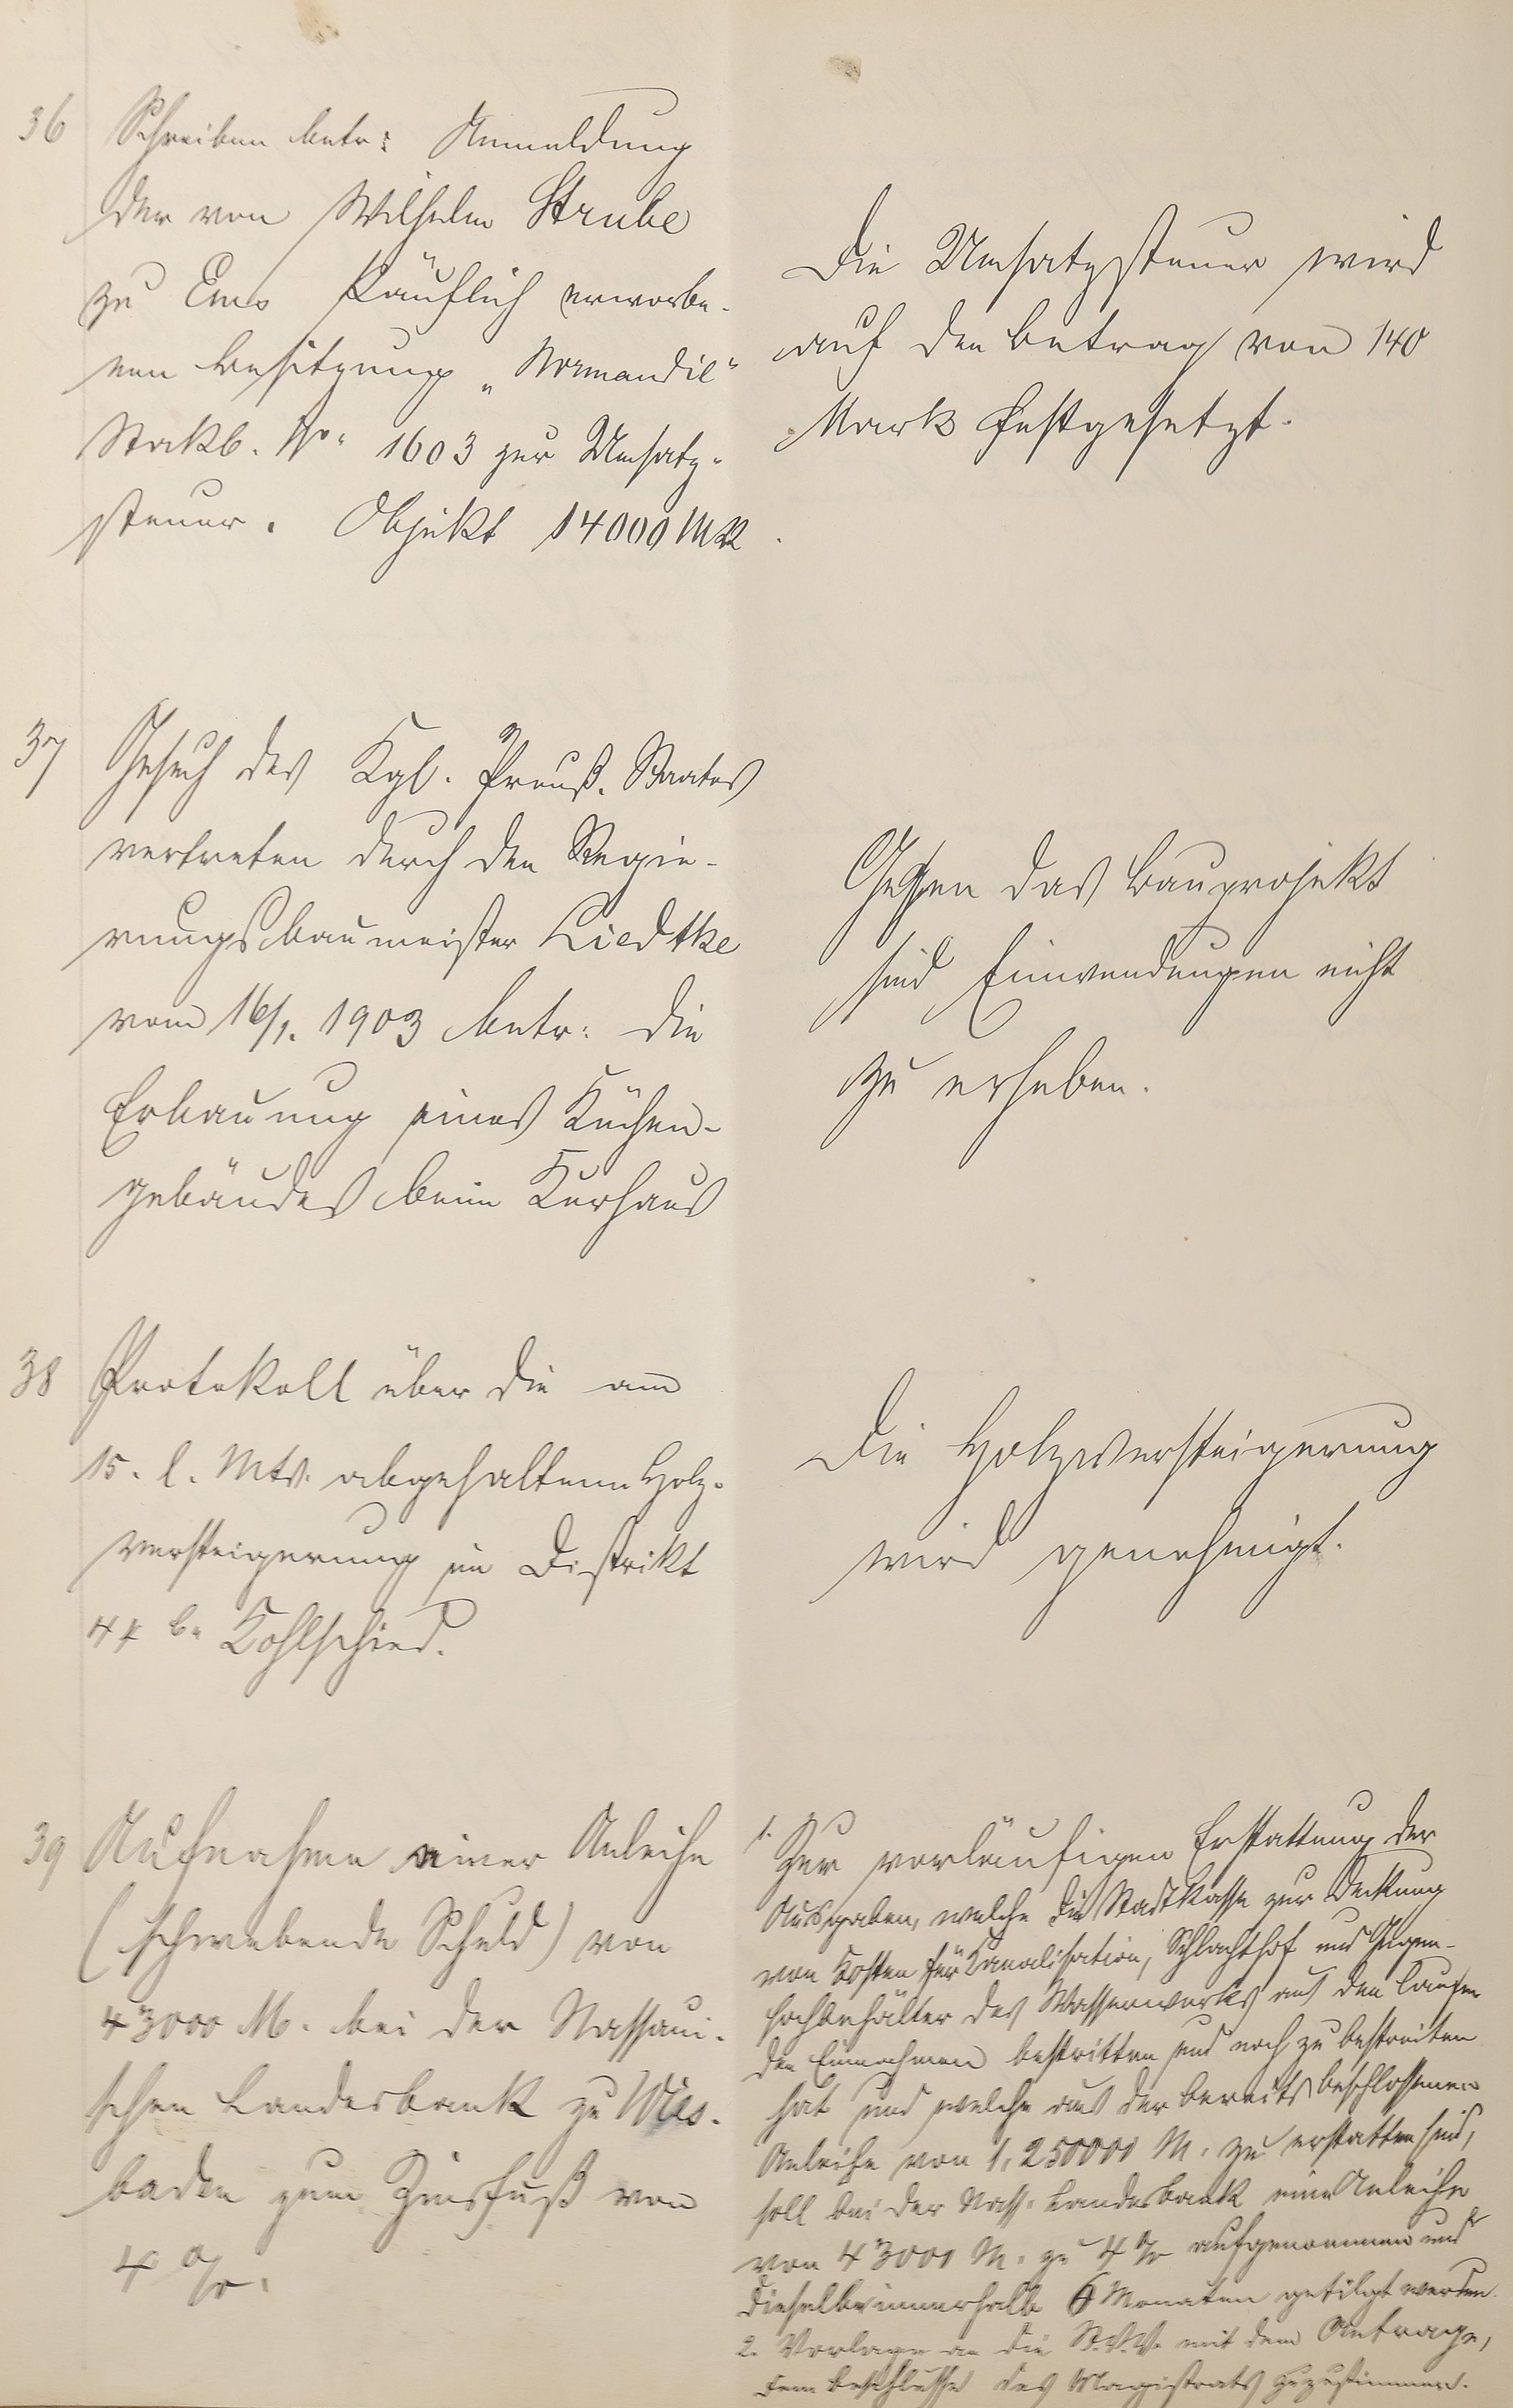 36 Schreiben betr: Anmeldung
der von Wilhelm Strube
zu Ems käuflich erworbe-
nen Besitzung „Normandie"
Stockb. No. 1603 zur Umsatz-
steuer. Objekt 14000 Mk.
Die Umsatzsteuer wird
auf den Betrag von 140
Mark festgesetzt.
37 Gesuch des Kgl. Preuß. Staates
vertreten durch den Regie-
rungsbaumeister Liedtke
vom 16/1. 1903 betr. die
Erbauung eines Küchen-
gebäudes beim Kurhaus
Gegen das Bauprojekt
sind Einwendungen nicht
zu erheben.
38 Protokoll über die am
15. l. Mts. abgehaltene Holz-
versteigerung im Distrikt
44 b. Kohlschied.
Die Holzversteigerung
wird genehmigt.
39 Aufnahme einer Anleihe
(schwebende Schuld) von
43000 M. bei der Nassaui-
schen Landesbank zu Wies-
baden zum Zinsfuß von
4 %.
1. Zur vorläufigen Erstattung der
Ausgaben, welche die Stadtkasse zur Deckung
von Kosten für Kanalisation, Schlachthof und
hochbehälter des Wasserwerks aus den laufen
den Einnahmen bestritten und noch zu bestreiten
hat und welche aus der bereits beschlossenen
Anleihe von 1,250000 M. zu erstatten sind,
soll bei der Nass. Landesbank eine Anleihe
von 43000 M. zu 4 % aufgenommen und
dieselbe innerhalb 6 Monaten getilgt werden.
2. Vorlage an die St.V.V. mit dem Antrage,
dem Beschlusse des Magistrats zuzustimmen.